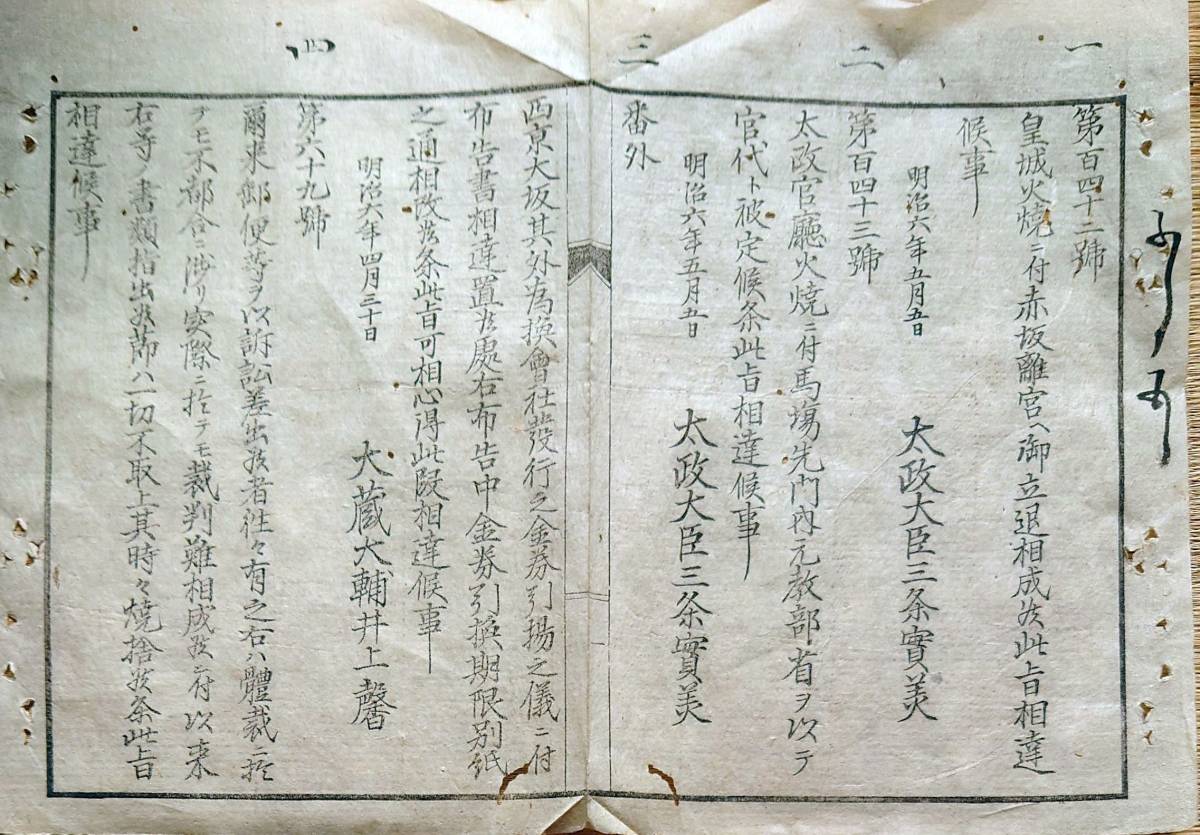 一
第百四十二號
皇城火燒ニ付赤坂離宮ヘ御立退相成候此旨相達
候事
明治六年五月五日
太政大臣三条實美
二
第百四十三號
太政官廳火燒ニ付馬場先門內元教部省ヲ以テ
官代ト被定候条此旨相達候事
明治六年五月五日
太政大臣三条實美
三
番外
西京大坂其外為換會社發行之金券引揚之儀ニ付
布告書相達置候處右布告中金券引換期限別紙
之通相改候条此旨可相心得此段相達候事
明治六年四月三十日
大藏大輔井上馨
四
第六十九號
爾来郵便等ヲ以訴訟差出候者往々有之右ハ體裁ニ於
テモ不都合ニ涉リ実際ニ於テモ裁判難相成候ニ付以来
右等ノ書類指出候節ハ一切不取上其時々燒捨候条此旨
相達候事